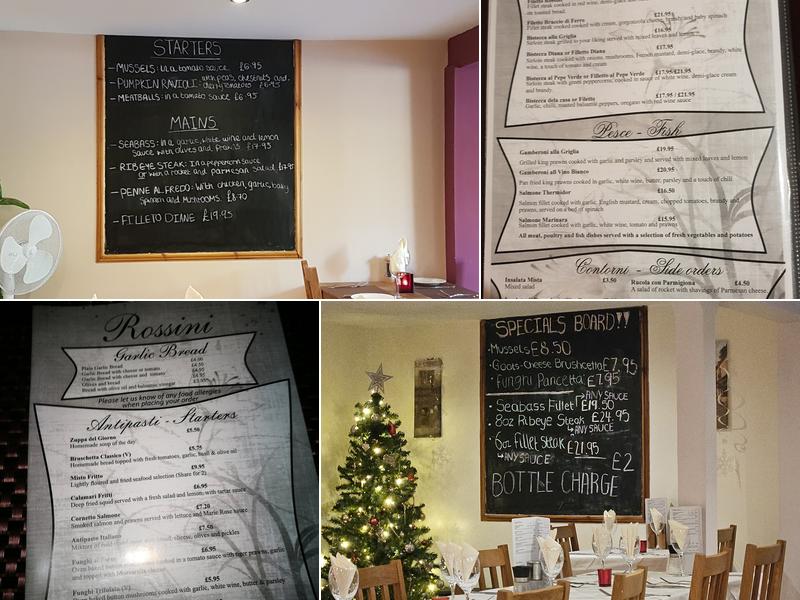 STARTERS
- MUSSELS: in a tomato sauce £6.95
- PUMPKIN RAVIOLI: with peas, chestnuts and
cherry tomatoes £6.95
- MEATBALLS: in a tomato sauce £6.95
MAINS
- SEABASS: In a garlic, white wine and lemon
sauce with olives and prawns £17.95
- RIBEYE STEAK: In a peppercorn sauce
or with a rocket and parmesan salad
- PENNE ALFREDO: With chicken, garlic, baby
Spinach and mushrooms. £8.70
- FILLETO DIANE £19.95
on toasted bread.
Filetto Brucio di Ferro £21.95
Fillet steak cooked with cream, gorgonzola cheese, brandy and baby spinach
Bistecca alla Griglia £16.95
Sirloin steak grilled to your liking served with mixed leaves and lemon
Bistecca Diana or Filletto Diana £17.95
Sirloin steak with onions, mushrooms, French mustard, demi-glace, brandy, white
wine, a touch of tomato and cream
Bistecca al Pepe Verde or Filletto al Pepe Verde £17.95/£21.95
Sirloin steak with green peppercorns, cooked in sauce of white wine, demi-glace cream
and brandy.
Bistecca dela casa or Filetto £17.95 / £21.95
Garlic, chilli, roasted balsamic peppers, oregano with red wine sauce
Pesce - Fish
Gamberoni alla Griglia £19.95
Grilled king prawns cooked with garlic and parsley and served with mixed leaves and lemon
Gamberoni all Vino Bianco £20.95
Pan fried king prawns cooked with garlic, white wine, butter, parsley and a touch of chilli
Salmone Thermidor £16.50
Salmon fillet cooked with garlic, English mustard, cream, chopped tomatoes, brandy and
prawns, served on a bed of spinach
Salmone Marinara £15.95
Salmon fillet cooked with garlic, white wine, tomato and prawns
All meat, poultry and fish dishes served with a selection of fresh vegetables and potatoes
Contorni - Side orders
Insalata Mista £3.50 Rucola con Parmigiona £4.50
Mixed salad A salad of rocket with shavings of Parmesan cheese.
Rossini
Garlic Bread
Plain Garlic Bread
Garlic Bread with cheese or tomato
Garlic Bread with cheese and tomato
Olives and bread
Bread with olive oil and balsamic vinegar
Please let us know of any food allergies
when placing your order
Antipasti - Starters
Zuppa del Giorno £5.50
Homemade soup of the day
Bruschetta Classica (V) £5.75
Homemade bread topped with fresh tomatoes, garlic, basil & olive oil
Misto Fritto £9.95
Lightly floured and fried seafood selection (Share for 2)
Calamari Fritti £6.95
Deep fried squid served with a fresh salad and lemon, with tartar sauce
Cornetto Salmone £7.20
Smoked salmon and prawns served with lettuce and Marie Rose sauce
Antipasto Italiano £7.50
olives and pickles
£6.95
Funghi Trifolati (V) £5.95
button mushrooms cooked with garlic, white wine, butter & parsley
SPECIALS BOARD!!
• Mussels £8.50
• Goats Cheese Brushcetta £7.95
• Fungru Pancetta £7.95
→ ANY SAUCE
• Seabass Fillet £19.50
• 8oz Ribeye Steak £24.95
↳ ANY SAUCE
• 6oz Fillet Steak £21.95
↳ ANY SAUCE
£2
BOTTLE CHARGE